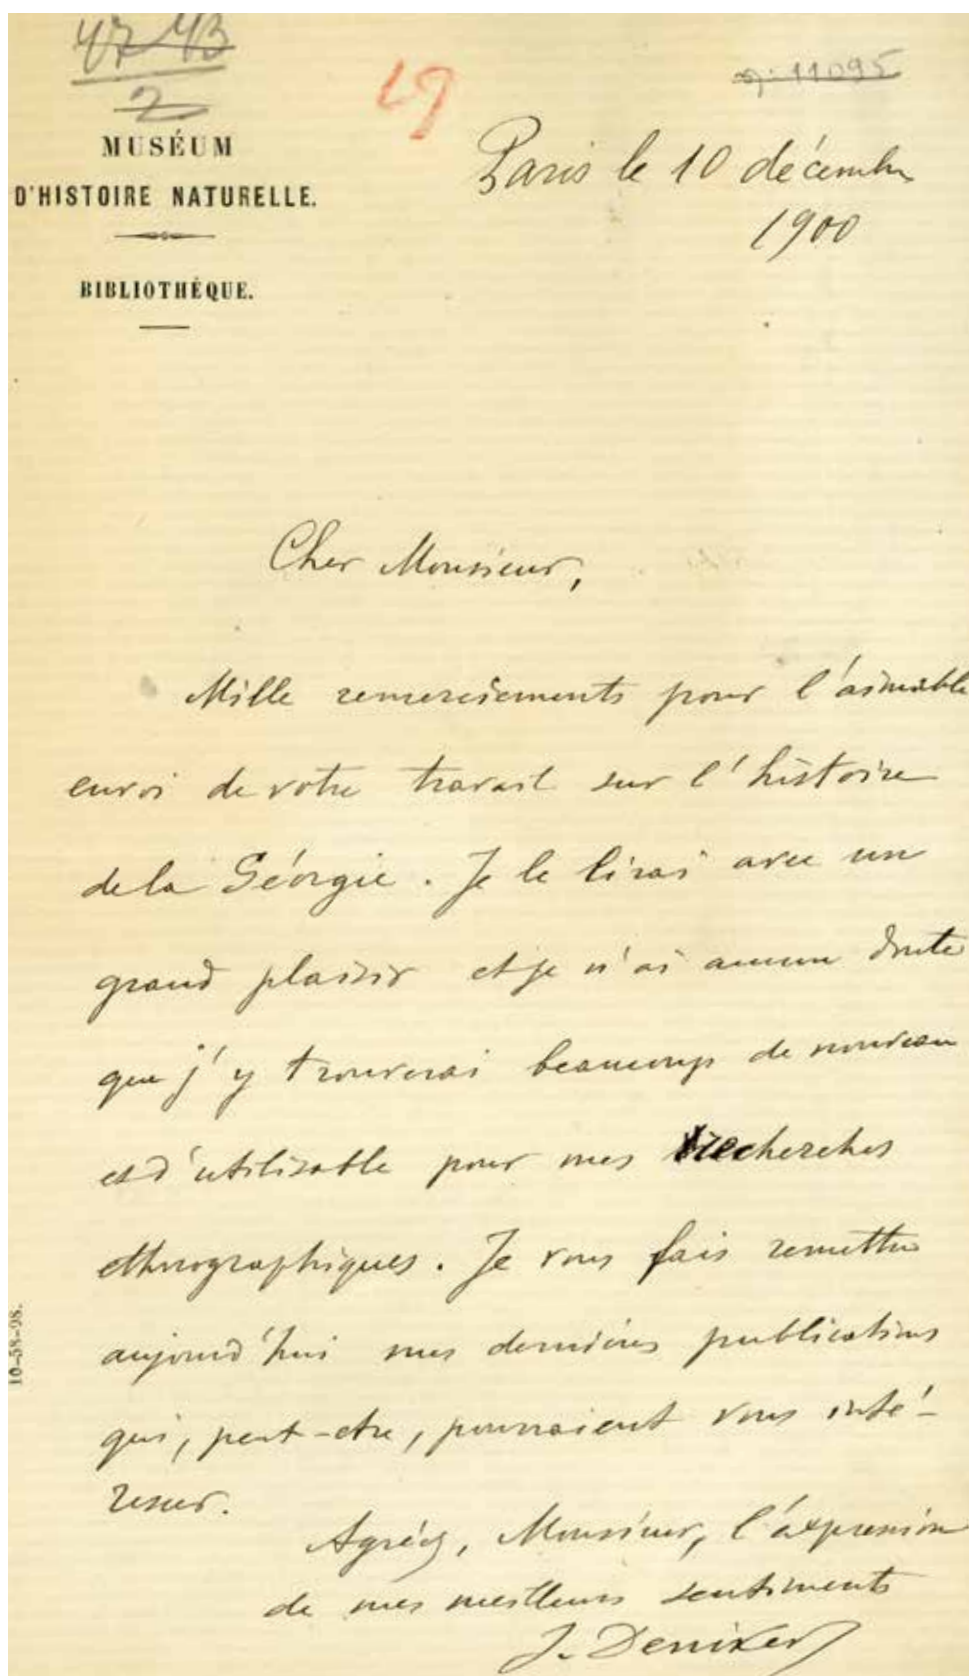 47-43
2
19
11095
MUSÉUM
D'HISTOIRE NATURELLE.
BIBLIOTHÈQUE.
Paris le 10 décembre
1900
Cher Monsieur,
Mille remerciements pour l'aimable
envoi de votre travail sur l'histoire
de la Géorgie. Je le lirai avec un
grand plaisir et je n'ai aucun doute
que j'y trouverai beaucoup de nouveau
et d'utilisable pour mes recherches
ethnographiques. Je vous fais remettre
aujourd'hui mes dernières publications
qui, peut-etre, pourraient vous inté-
resser.
Agréez, Monsieur, l'expression
de mes meilleurs sentiments
J. Deniker
10-58-98.